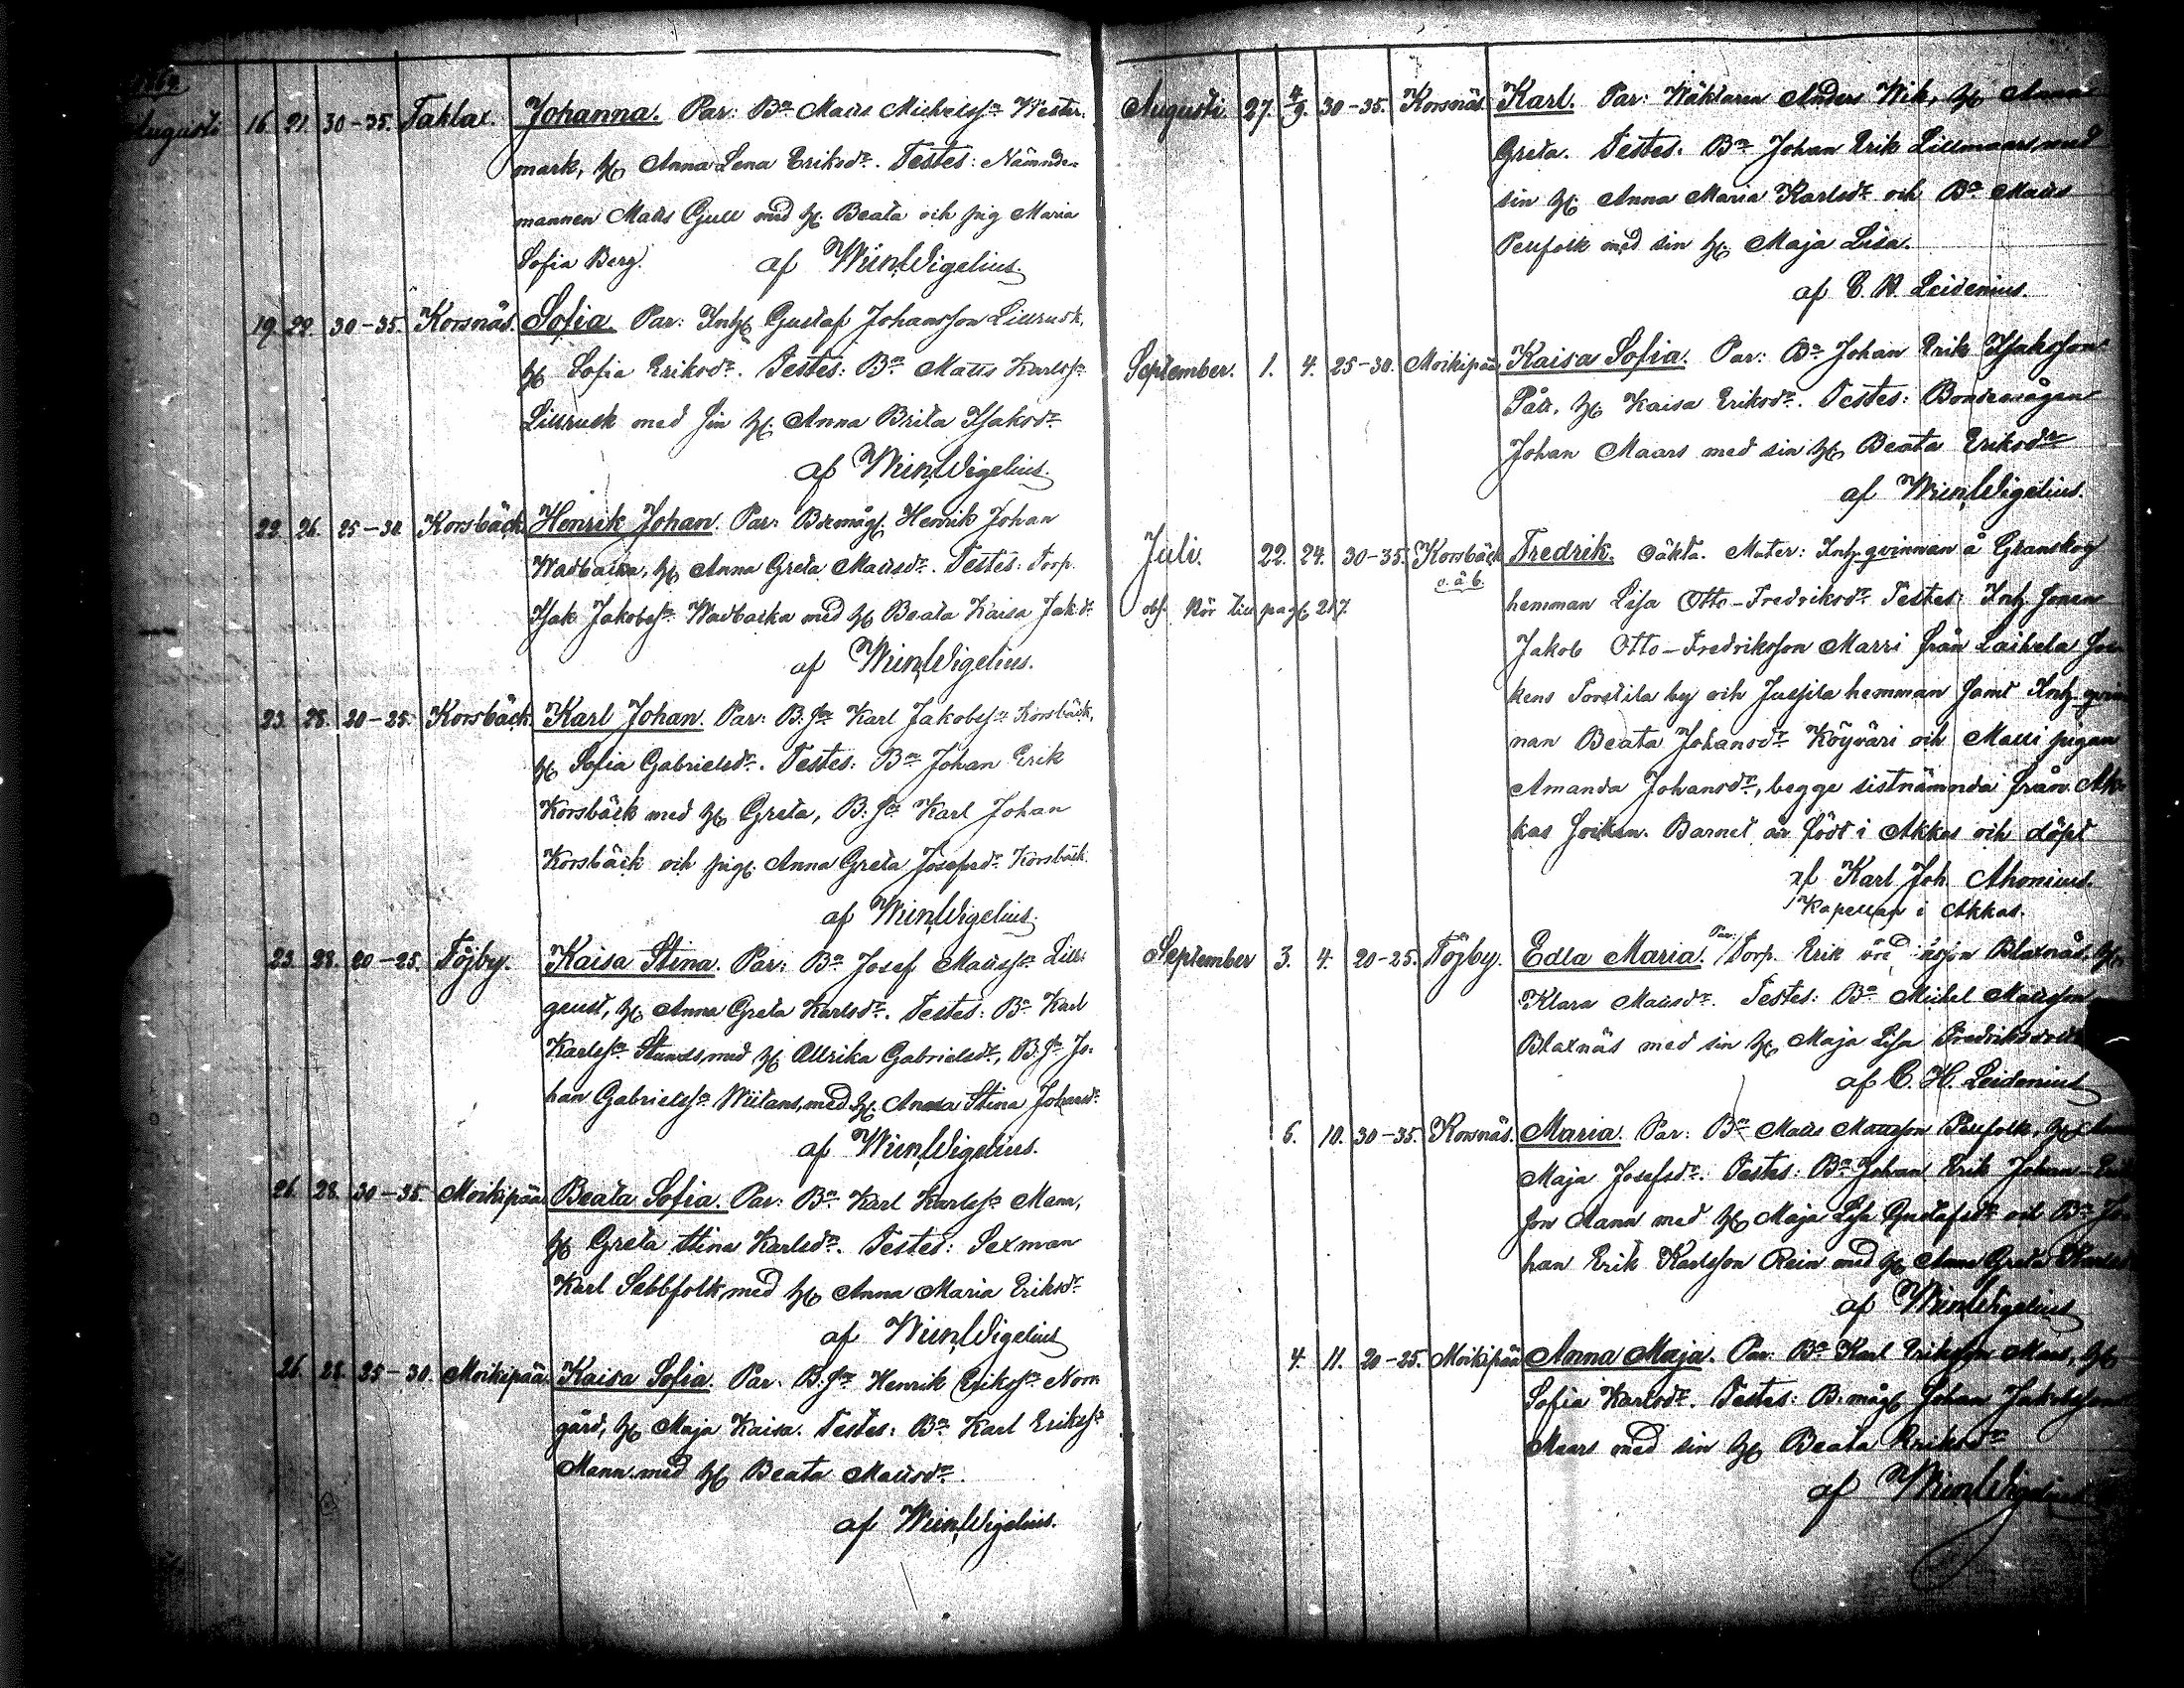 Augusti 16. 21. 30-35. Taklax. Johanna. Par: Bn Matts Michelssn Wester-
mark, H. Anna Lena Eriksdr. Testes: Nämnde-
mannen Matts Gull med H. Beata och pig. Maria
Sofia Berg. af Wilh. Wigelius.
19. 22. 30-35. Korsnäs. Sofia. Par: Inh. Gustaf Johansson Lillrusk,
H. Sofia Eriksdr. Testes: Bn Matts Karlssn
Lillrusk med sin H. Anna Brita Isaksdr
af Wilh. Wigelius.
22. 26. 25-30. Korsbäck. Henrik Johan. Par: Bdemåg. Henrik Johan
Wadbacka, H. Anna Greta Mattsdr. Testes: Torp.
Isak Jakobssn Wadbacka med H. Beata Kaisa Jak:dr
af Wilh. Wigelius.
23. 28. 20-25. Korsbäck. Karl Johan. Par: B:sn Karl Jakobssn Korsbäck,
H. Sofia Gabrielsdr. Testes: Bn Johan Erik
Korsbäck med H. Greta, B:sn Karl Johan
Korsbäck och pig. Anna Greta Josefsdr Korsbäck.
af Wilh. Wigelius.
23. 28. 20-25. Töjby. Kaisa Stina. Par: Bn Josef Mattssn Lill-
geust, H. Anna Greta Karlsdr. Testes: Bn Karl
Karlssn med H. Ulrika Gabrielsdr, B:sn Jo-
han Gabrielssn Wiitans, med H. Anna Stina Johansdr
af Wilh. Wigelius.
26. 28. 30-35. Moikipää. Beata Sofia. Par: Bn Karl Karlssn Mann,
H. Greta Stina Karlsdr. Testes: Sexman
Karl Sebbfolk, med H. Anna Maria Eriksdr
af Wilh. Wigelius
26. 28. 25-30. Moikipää. Kaisa Sofia. Par: B:sn Henrik Erikssn Norr-
gård, H. Maja Kaisa. Testes: Bn Karl Erikssn
Mann med H. Beata Mattsdr.
af Wilh. Wigelius.
Augusti 27. 4/9. 30-35. Korsnäs. Karl. Par: Wäktaren Anders Wik, H. Anna
Greta. Testes. Bn Johan Erik Lillmaars med
sin H. Anna Maria Karlsdr och Bn Matts
Pellfolk med sin H. Maja Lisa.
af C. H. Leidenius.
September. 1. 4. 25-30. Moikipää Kaisa Sofia. Par: Bn Johan Erik Isaksson
Pått, H. Kaisa Eriksdr. Testes: Bondemågen
Johan Maars med sin H. Beata Eriksdr
af Wilh. Wigelius.
Juli. 22. 24. 30-35. Korsbäck Fredrik. oäkta. Mater: Inh. qvinnan å Granskog
hemman Lisa Otto-Fredriksdr Testes: Inh. sonen
obs. Rör till pag. 217.
Jakob Otto-Fredriksson Marri från Laihela soc-
kens Torstila by och Jussila hemman samt Inh. qvin
nan Beata Johansdr Köyväri och Matti pigan
Amanda Johansdr, begge sistnämnda från Ak-
kas socken. Barnet är födt i Akkas och döpt
af Karl Joh. Ahonius.
Kapellan i Akkas.
September 3. 4. 20-25. Töjby. Edla Maria. Par: Torp. Erik Blaxnäs, H.
Klara Mattsdr. Testes: Bn Michel Mattsson
Blaxnäs med sin H. Maja Lisa Fredriksdr
af C. H. Leidenius
6. 10. 30-35. Korsnäs. Maria. Par: Bn Matts Mattsson Pellfolk, H.
Maja Josefsdr. Testes: Bn Johan Erik Johan-Erik
son Mann med H. Maja Lisa Gustafsdr och Bn Jo-
han Erik Karlsson Rein med H. Anna Greta Karlsdr
af Wilh. Wigelius
4. 11. 20-25. Moikipää Anna Maja. Par: Bn Karl Eriksson Mans, H.
Sofia Karlsdr. Testes: B:måg Johan Jakobsson
Maars med sin H. Beata Eriksdr
af Wilh. Wigelius